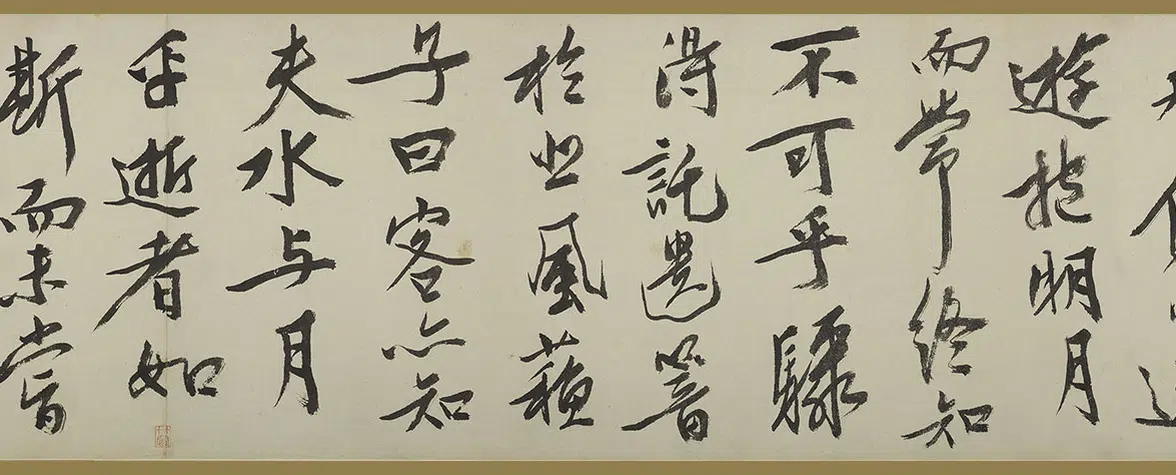 遊抱明月
而常終知
不可乎驟
得託遺響
於悲風蘓
子曰客亦知
夫水与月
乎逝者如
斯而未嘗